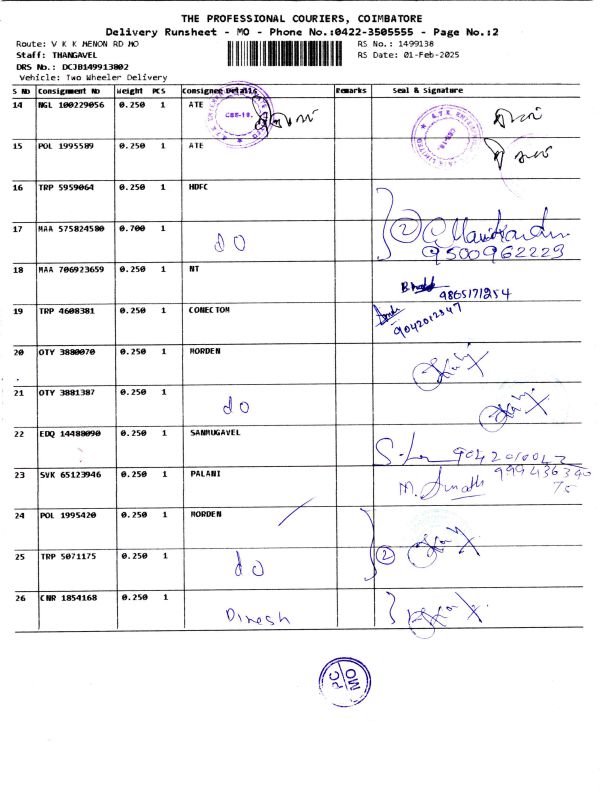 THE PROFESSIONAL COURIERS, COIMBATORE
Delivery Runsheet - MO - Phone No.:0422-3505555 - Page No.:2
Route: V K K MENON RD MO RS No.: 1499138
Staff: THANGAVEL RS Date: 01-Feb-2025
DRS No.: DCJB149913802
Vehicle: Two Wheeler Delivery
S No Consignment No Weight PCS Consignee Details Remarks seal & Signature
14 NGL 100229056 0.250 1 ATE
15 POL 1995589 0.250 1 ATE
16 TRP 5959064 0.250 1 HDFC
17 MAA 575824580 0.700 1 do 2
9500962229
18 MAA 706923659 0.250 1 NT
9865171254
19 TRP 4608381 0.250 1 CONECTOM
9042012347
20 OTY 3880070 0.250 1 MORDEN
21 OTY 3881387 0.250 1 do
22 EDQ 14488090 0.250 1 SANMUGAVEL
9042010043
23 SVK 65123946 0.250 1 PALANI
24 POL 1995420 0.250 1 MORDEN
25 TRP 5071175 0.250 1 do 2
26 CNR 1854168 0.250 1 Dinesh
PC MO